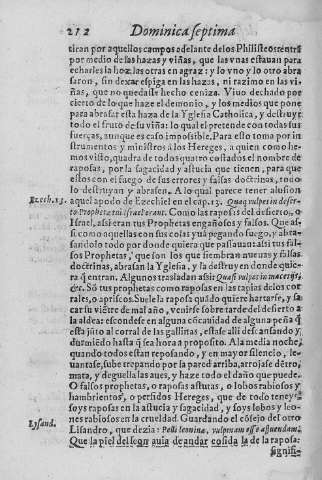 212 Dominica septima
tiran por aquellos campos adelante de los Philisteos: entrã
por medio de las hazas y viñas, que las vnas estauan para
echarles la hoz, las otras en agraz: y lo vno y lo otro abra
saron, sin dexar espiga en las hazas, ni razimo en las vi
ñas, que no quedasse hecho ceniza. Viuo dechado por
cierto de lo que haze el demonio, y los medios que pone
para abrasar esta haza de la Yglesia Catholica, y destruye
todo el fruto de su viña: lo qual pretende con todas sus
fuerças, aunque es caso impossible. Para esto toma por in
strumentos y ministros a los Hereges, a quien como he
mos visto, quadra de todos quatro costados el nombre de
raposas, por la sagacidad y astucia que tienen, para que
estos con el fuego de sus errores y falsas doctrinas, todo
lo destruyan y abrasen. A lo qual parece tener alusion
Ezech. 13. aquel apodo de Ezechiel en el cap. 13. Quasi vulpes in deser-
to Prophetæ tui Israel erant. Como las raposas del desierto, o
Israel, assi eran tus Prophetas engañosos y falsos. Que as-
si como aquellas con sus colas yuã pegando fuego, y abra-
sandolo todo por donde quiera que passauan: assi tus fal-
sos Prophetas, que son los que siembran nueuas y falsas
doctrinas, abrasan la Yglesia, y la destruyen donde quie-
ra que entran. Algunos trasladan assi: Quasi vulpes in macerijs,
&c. Sõ tus prophetas como raposas en las tapias de los cor
rales, o apriscos. Suele la raposa quãdo quiere hartarse, y sa
car su viẽtre de mal año, venirse sobre tarde del desierto a
la aldea: escondese en alguna concauidad de alguna peña q̃
esta jũto al corral de las gallinas, estase alli descansando y
durmiẽdo hasta q̃ sea hora a proposito. A la media noche,
quando todos estan reposando, y en mayor silencio, le-
uantase, sube trepando por la pared arriba, arrojase dẽtro,
mata, y deguella las aues, y haze todo el daño que puede.
O falsos prophetas, o raposas asturas, o lobos rabiosos y
hambrientos, o perfidos Hereges, que de todo teneys:
soys raposas en la astucia y sagacidad, y soys lobos y leo-
nes rabiosos en la crueldad. Guardando el cõsejo del otro
Lysand. Lisandro, que dezia: Pelli leonina, vulpinam esse assuendam.
Que la piel del leon auia de andar cosida la de la raposa:
signifi-